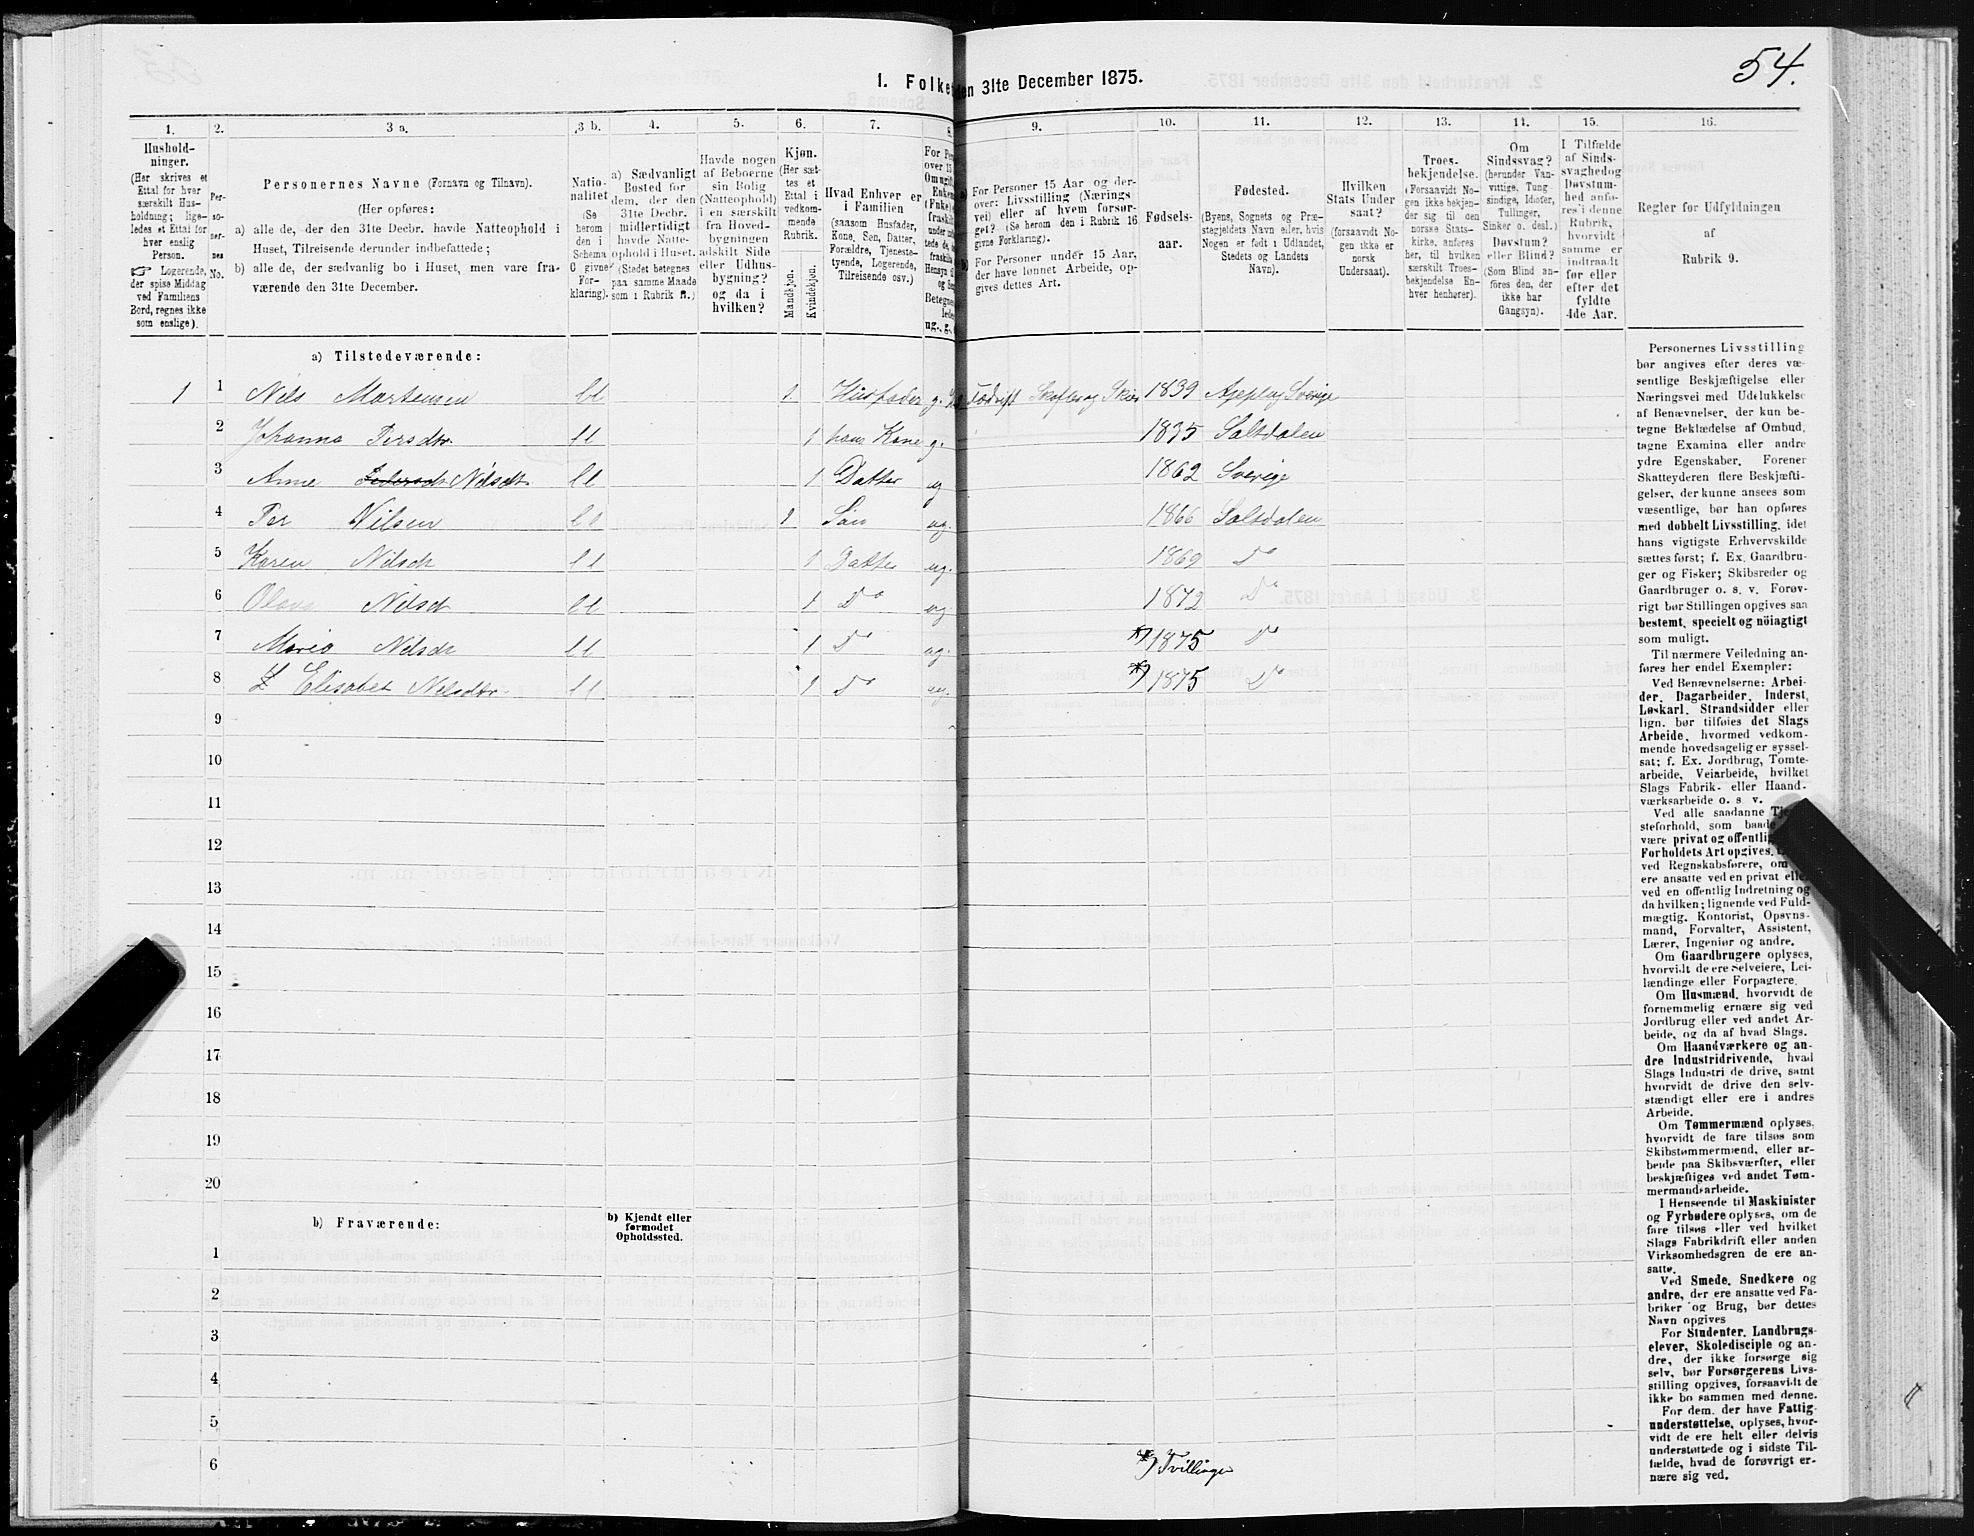 54.
1. Folke den 31te December 1875.
1. 2. 3 a. 3 b. 4. 5. 6. 7. 8. 9. 10. 11. 12. 13. 14. 15. 16.
Hushold-
ninger.
(Her skrives et
Ettal for hver
særskilt Hus-
holdning; lige-
ledes et Ettal for
hver enslig
Person.
☞ Logerende,
der spise Middag
ved Familiens
Bord, regnes ikke
som enslige).
Per-
so-
ner-
nes
No.
Personernes Navne (Fornavn og Tilnavn).
(Her opføres:
a) alle de, der den 31te Decbr. havde Natteophold i
Huset, Tilreisende derunder indbefattede;
b) alle de, der sædvanlig bo i Huset, men vare fra-
værende den 31te December.
Natio-
nalitet
(Se
herom
den i
Schema
C givne
For-
klaring).
a) Sædvanligt
Bosted for
dem, der den
31te Decbr.
midlertidigt
havde Natte-
ophold i Huset.
(Stedet betegnes
paa samme Maade
som i Rubrik 11.)
Havde nogen
af Beboerne
sin Bolig
(Natteophold)
i en særskilt
fra Hoved-
bygningen
adskilt Side
eller Udhus-
bygning?
og da i
hvilken?
Kjøn.
(Her sæt-
tes et
Ettal i
vedkom-
mende
Rubrik.
Mandkjøn.
Kvindekjøn.
Hvad Enhver er
i Familien
(saasom Husfader,
Kone, Søn, Datter,
Forældre, Tjeneste-
tyende, Logerende,
Tilreisende osv.)
For Per
over 15
Om ugift
Enkem
(Fnke)
fraskilt
ug., g.,
For Personer 15 Aar og der-
over: Livsstilling (Nærings
vei) eller af hvem forsør-
get? (Se herom den i Rubrik 16
givne Forklaring).
For Personer under 15 Aar,
der have lønnet Arbeide, op-
gives dettes Art.
Fødsels-
aar.
Fødested.
(Byens, Sognets og Præ-
stegjeldets Navn eller, hvis
Nogen er født i Udlandet,
Stedets og Landets
Navn).
Hvilken
Stats Under
saat?
(forsaavidt No-
gen ikke er
norsk
Undersaat).
Troes-
bekjendelse.
(Forsaavidt No-
gen ikke bekjen-
der sig til den
norske Stats-
kirke, anføres
her, til hvilken
særskilt Troes-
bekjendelse En-
hver henhører).
Om
Sindssvag?
(herunder Van-
vittige, Tung
sindige, Idioter,
Tullinger,
Sinker o. desl.)
Døvstum?
eller Blind?
(Som Blind an-
føres den, der
ikke har
Gangsyn).
I Tilfælde
af Sinds-
svaghed og
Døvstum-
hed anfø-
res i denne
Rubrik,
hvorvidt
samme er
indtraadt
før eller
efter det
fyldte
4de Aar.
Regler for Udfyldningen
af
Rubrik 9.
a) Tilstedeværende:
1 1 Nils Mortensen ll 1 Husfader g. Jordrift Skoflerog Skin 1839 Arjeplug Sverige
2 Johanna Persdtr. ll 1 hans Kone g. 1835 Saltdalen
3 Anne Nilsdt. ll 1 Datter ug 1862 Sverige
4 Per Nilsen ll 1 Søn ug. 1866 Saltdalen
5 Karen Nilsdt ll 1 Datter ug. 1869 Do
6 Olava Nilsdt ll 1 Do ug 1872 Do
7 Maria Nilsdt ll 1 Do ug. *) 1875 Do
8 Elisabet Nilsdtr ll 1 Do ug. *) 1875 Do
9
10
11
12
13
14
15
16
17
18
19
20
b) Fraværende:
b) Kjendt eller
formodet
Opholdssted.
1
2
3
4
5
6
*) Tvillinger
Personernes Livsstilling
bør angives efter deres væ-
sentlige Beskjæftigelse eller
Næringsvei med Udelukkelse
af Benævnelser, der kun be-
tegne Beklædelse af Ombud,
tagne Examina eller andre
ydre Egenskaber. Forener
Skatteyderen flere Beskjæfti-
gelser, der kunne ansees som
væsentlige, bør han opføres
med dobbelt Livsstilling, idet
hans vigtigste Erhvervskilde
sættes først; f. Ex. Gaardbru-
ger og Fisker; Skibsreder og
Gaardbruger o. s. v. Forøv-
rigt bør Stillingen opgives saa
bestemt, specielt og nöiagtigt
som muligt.
Til nærmere Veiledning an-
føres her endel Exempler:
Ved Benævnelserne: Arbei-
der, Dagarbeider, Inderst,
Løskarl, Strandsidder eller
lign. bør tilføies det Slags
Arbeide, hvormed vedkom-
mende hovedsagelig er syssel-
sat; f. Ex. Jordbrug, Tomte-
arbeide, Veiarbeide, hvilket
Slags Fabrik- eller Haand-
værksarbeide o. s. v.
Ved alle saadanne Tje
steforhold, som baade
være privat og offentlig
Forholdets Art opgives,
ved Regnskabsførere, om
ere ansatte ved en privat elle
ved en offentlig Indretning og
da hvilken; lignende ved Fuld-
mægtig, Kontorist, Opsyns-
mand, Forvalter, Assistent,
Lærer, Ingeniør og andre.
Om Gaardbrugere oplyses,
hvorvidt de ere Selveiere, Lei-
lændinge eller Forpagtere.
Om Husmænd, hvorvidt de
fornemmelig ernære sig ved
Jordbrug eller ved andet Ar-
beide, og da af hvad Slags.
Om Haandværkere og an-
dre Industridrivende, hvad
Slags Industri de drive, samt
hvorvidt de drive den selv-
stændigt eller ere i andres
Arbeide.
Om Tømmermænd oplyses,
hvorvidt de fare tilsøs som
Skibstømmermænd, eller ar-
beide paa Skibsværfter, eller
beskjæftiges ved andet Tøm-
mermandsarbeide.
I Henseende til Maskinister
og Fyrbødere oplyses, om de
fare tilsøs eller ved hvilket
Slags Fabrikdrift eller anden
Virksomhedsgren de ere an-
satte.
Ved Smede, Snedkere og
andre, der ere ansatte ved Fa-
briker og Brug, bør dettes
Navn opgives
For Studenter, Landbrugs-
elever, Skoledisciple og an-
dre, der ikke forsørge sig
selv, bør Forsørgerens Livs-
stilling opgives, forsaavidt de
ikke bo sammen med denne.
For dem, der have Fattig-
understøttelse, oplyses, hvor-
vidt de ere helt eller delvis
understøttede og i sidste Til-
fælde, hvad de forøvrigt er-
nære sig ved.